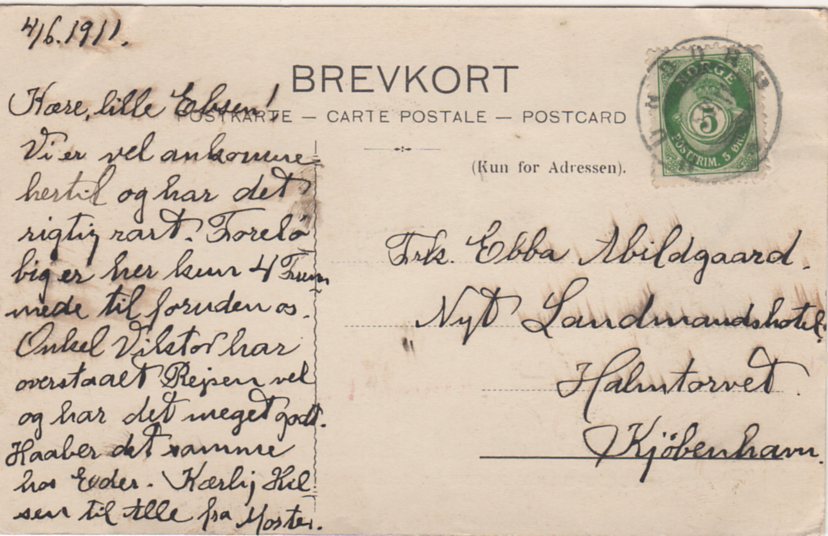 4/6.1911.
BREVKORT
POSTKARTE — CARTE POSTALE — POSTCARD
(Kun for Adressen).
NORGE
5
POSTFRIM. 5 ØRE
Kære, lille Ebsen!
Vi er vel ankomne
hertil og har det
rigtig rart. Forelø
big er her kun 4 Frem
mede til foruden os.
Onkel Vilstor har
overstaaet Rejsen vel
og har det meget godt.
Haaber det samme
hos Eder. Kærlig Hil
sen til Alle fra Moster.
Frk. Ebba Abildgaard.
Nyt Landmandshotel,
Halmtorvet.
Kjöbenhavn.